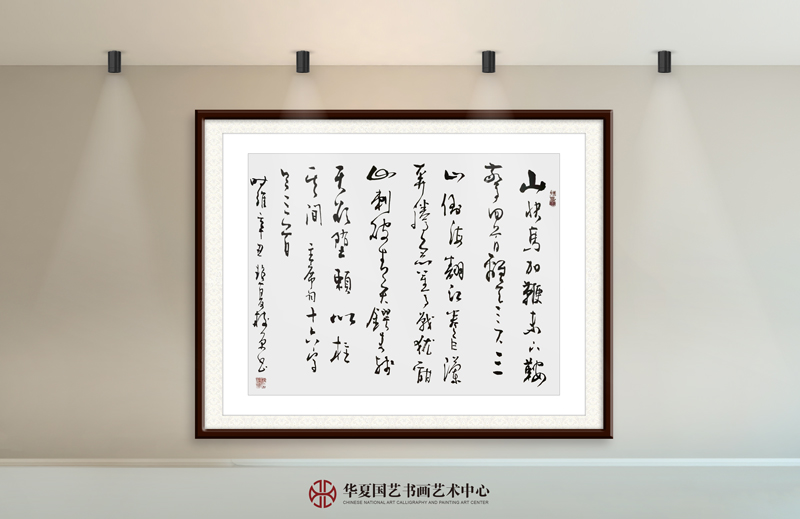 山快馬加鞭未下鞍
驚回首離天三尺三
山倒海翻江卷巨瀾
奔騰急万馬戰犹酣
山刺破青天鍔未残
天欲墮賴以柱
其間 主席詞十六字
令三首
時維辛丑
华夏国艺书画艺术中心
CHINESE NATIONAL ART CALLIGRAPHY AND PAINTING ART CENTER